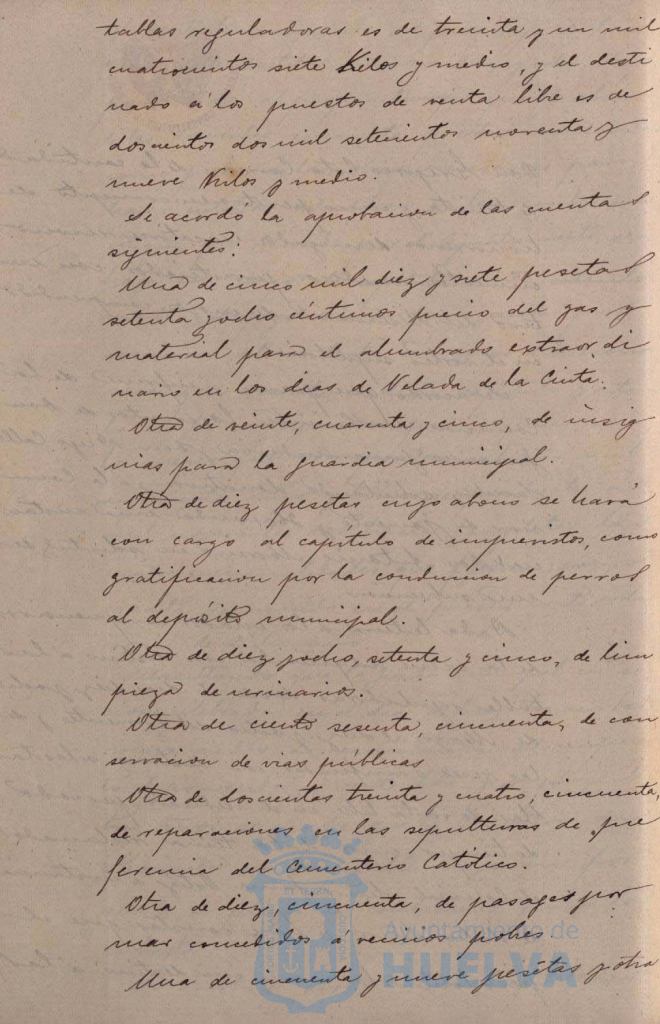 tablas reguladoras es de treinta y un mil
cuatrocientos siete Kilos y medio, y el desti
nado á los puestos de venta libre es de
doscientos dos mil setecientos noventa y
nueve Kilos y medio.
Se acordó la aprobacion de las cuentas
siguientes:
Una de cinco mil diez y siete pesetas
setenta y ocho céntimos precio del gas y
material para el alumbrado extraor di
nario en los dias de Velada de la Cinta.
Otra de veinte, cuarenta y cinco, de insig
nias para la guardia municipal.
Otra de diez pesetas cuyo abono se hará
con cargo al capítulo de imprevistos, como
gratificacion por la conduccion de perros
al depósito municipal.
Otra de diez y ocho, setenta y cinco, de lim
pieza de urinarios.
Otra de ciento sesenta, cincuenta, de con
servacion de vias públicas
Otra de doscientas treinta y cuatro, cincuenta,
de reparaciones en las sepulturas de pre
ferencia del Cementerio Católico.
Otra de diez, cincuenta, de pasages por
mar concedidos á vecinos pobres.
Una de cincuenta y nueve pesetas y otra
Ayuntamiento de
HUELVA